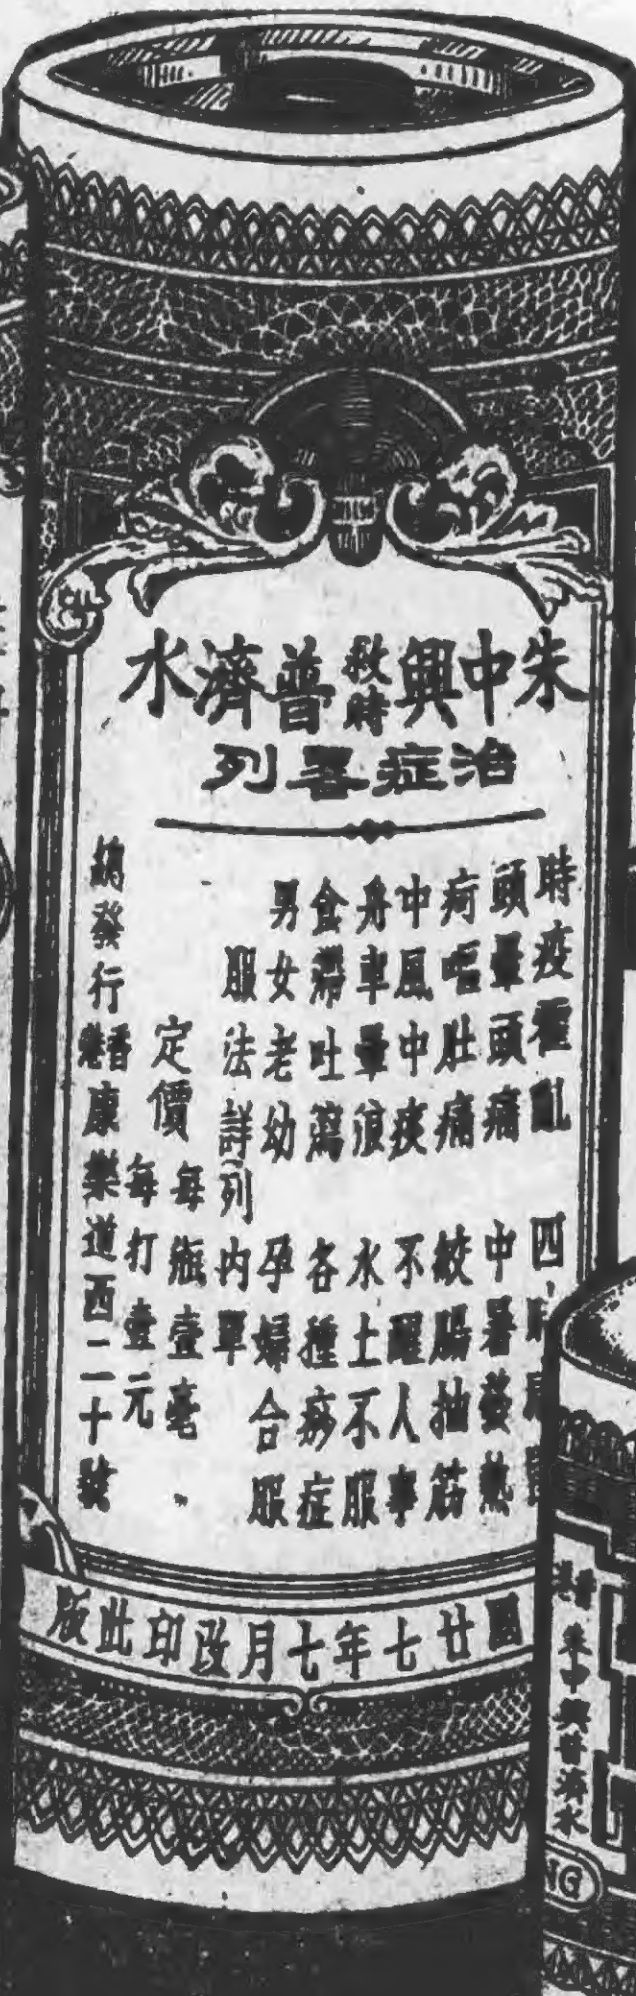 朱中興救時普濟水
治症畧列
時疫霍亂 四時
頭暈頭痛 中暑發熱
疴嘔肚痛 絞腸抽筋
中風中痰 不醒人事
舟車暈浪 水土不服
食滯吐瀉 各種痧症
男女老幼 孕婦合服
服法詳列內單
定價 每瓶壹毫
每打壹元
總發行香港康樂道西二十號
國廿七年七月改印此版
香港
朱中興普濟水
NG